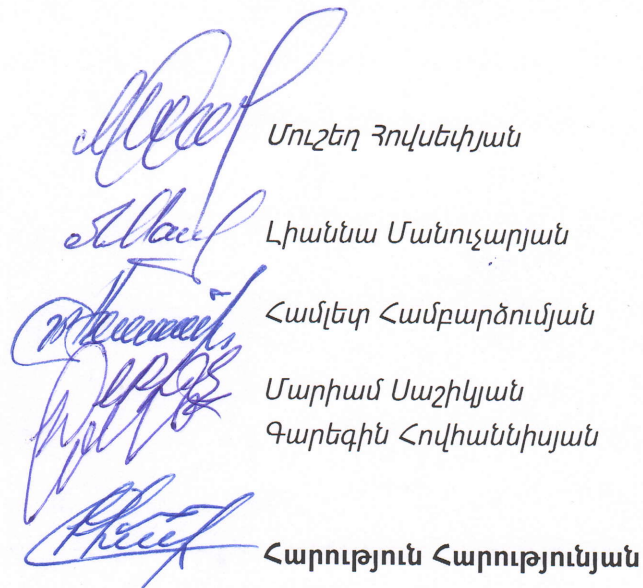 Մուշեղ Յովսեփյան
Լիաննա Մանուչարյան
Համլետ Համբարձումյան
Մարիամ Սաշիկյան
Գարեգին Հովհաննիսյան
Հարություն Հարությունյան